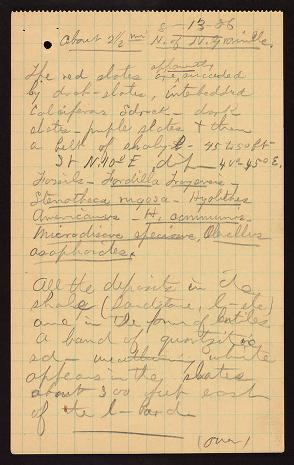 8-13-86
About 2½ mi N. of N. Granville.
The red slates apparently are succeeded
by dark slates, interbedded
calciferous sdrock - dark
slates - purple slates + then
a belt of shaly - 45 to 50 ft
St N. 10° E, dip - 40°-45° E.
Fossils - Fordilla troyensis -
Stenotheca rugosa - Hyolithes
Americanus - H. communis -
Microdiscus speciosus, Olenellus
asaphoides.
All the deposits in the
shale (sandstone, etc)
are in the form of lentiles
a band of quartzitic
sd - weathering white
appears in the slates
about 300 feet east
of the
(over)